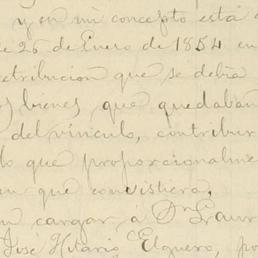 y en mi concepto está
e 26 de Enero de 1854 en
etribucion que se debia
os bienes, que quedaban
del vínculo, contribu
lo que proporcionalme
an que consistiera,
n cargar, á Dn Laur
José Hilario Elguero, po